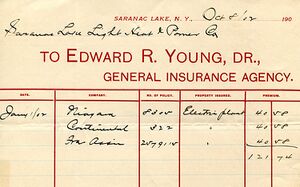 SARANAC LAKE, N. Y., Oct 8/02 190
Saranac Lake Light Heat & Power Co
TO EDWARD R. YOUNG, DR.,
GENERAL INSURANCE AGENCY.
DATE. COMPANY. NO. OF POLICY. PROPERTY INSURED. PREMIUM.
Jany 1/02 Niagara 8305 Electric plant 40 58
Continental 322 " 40 58
Ins Assn 257915 " 40 58
121 74